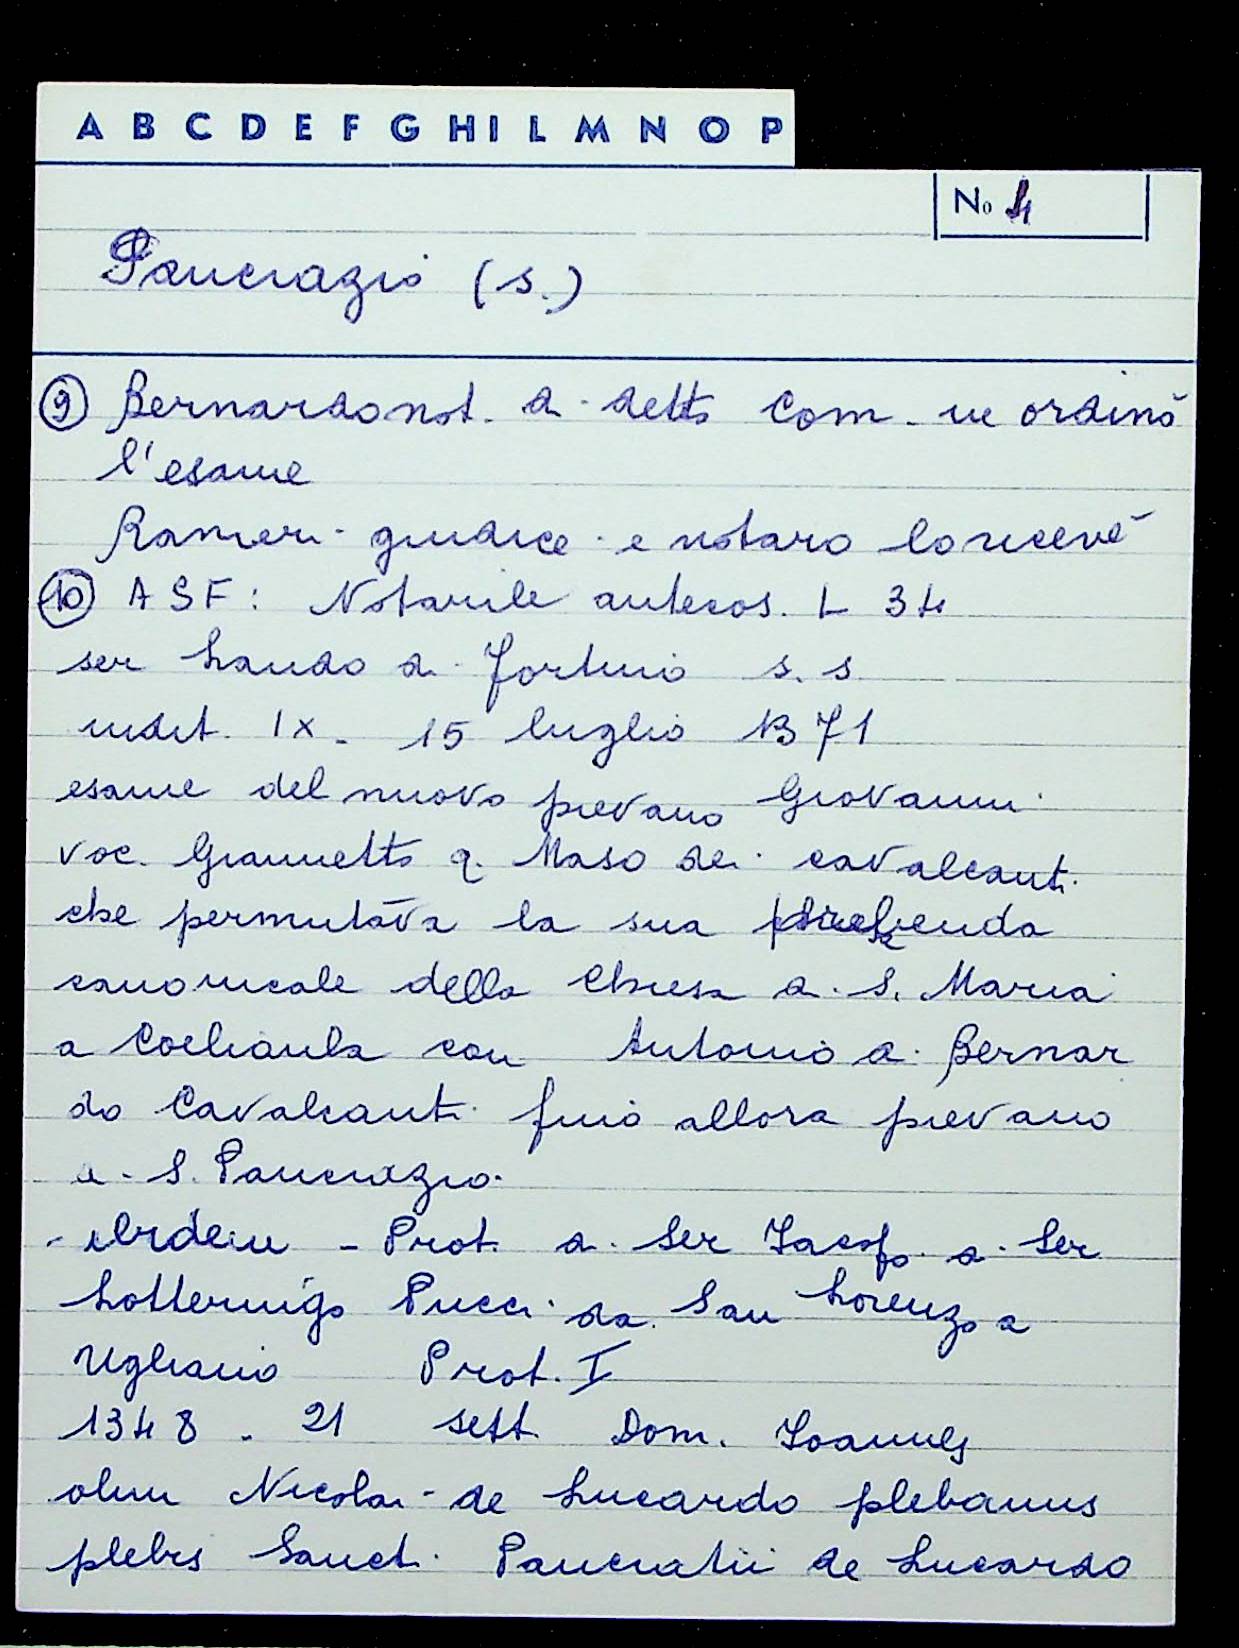 A B C D E F G H I L M N O P
No 4
Pancrazio (S.)
9 Bernardo not. di detto Com. ne ordinò
l'esame
Ranieri giudice e notaro lo ricevè
10 ASF: Notarile antecos. L 34
ser Lando di Fortino s. s.
indit. IX. 15 luglio 1371
esame del nuovo pievano Giovanni
voc. Giannetto q. Maso dei cavalcanti
che permutava la sua prebenda
canonicale della Chiesa di S. Maria
a Coeliaula con Antonio di Bernar
do Cavalcanti fino allora pievano
di S. Pancrazio.
- Prot. di Ser Iacopo di Ser
Lotteringo Pucci da San Lorenzo a
Ugliano Prot. I
1348. 21 sett. Dom. Ioannes
olim Nicolai de Lucardo plebanus
plebis Sancti Pancratii de Lucardo